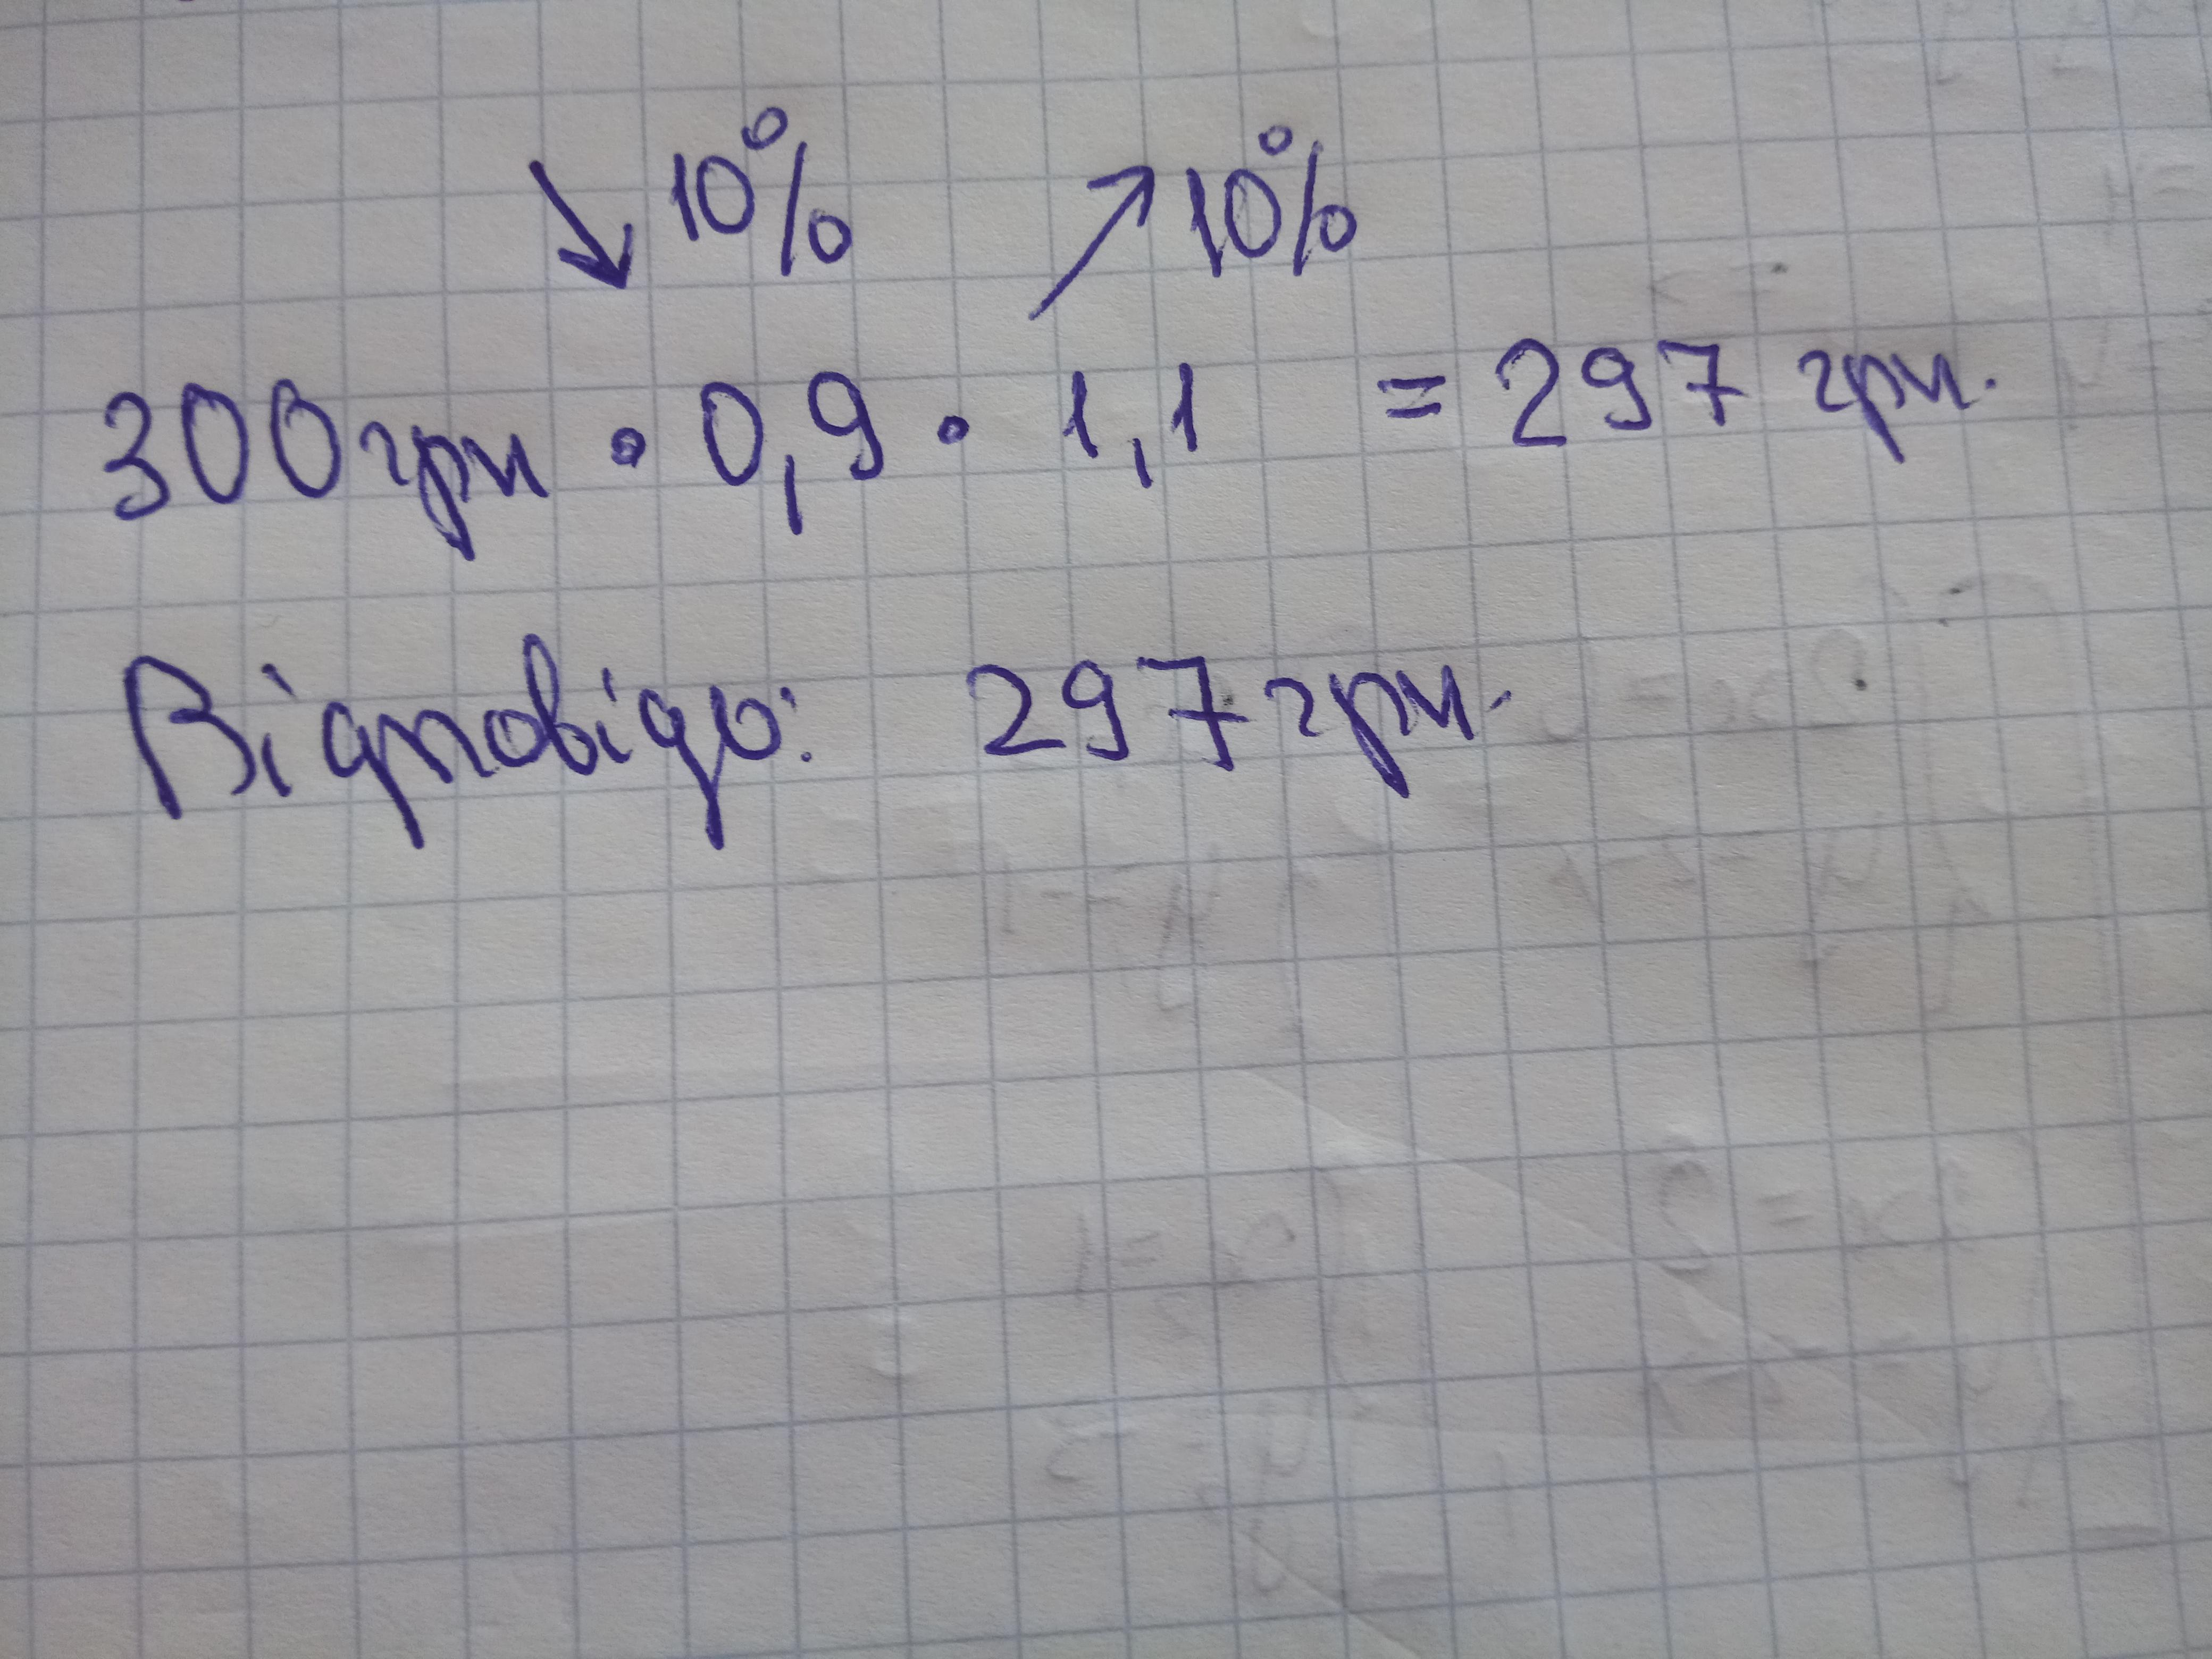 ↘10% ↗10%
300грн • 0,9 • 1,1 = 297 грн.
Відповідь: 297 грн.